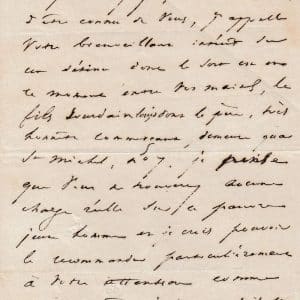 d'être connu de Vous, j'appelle
Votre bienveillant intérêt sur
un détenu dont le sort est en
ce moment entre Vos mains, le
fils Jourdain dont le père, très
honnête commerçant, demeure quai
St Michel, n° 7. je pense
que Vous ne trouverez aucune
charge réelle sur ce pauvre
jeune homme et je crois pouvoir
le recommander particulièrement
à Votre attention comme